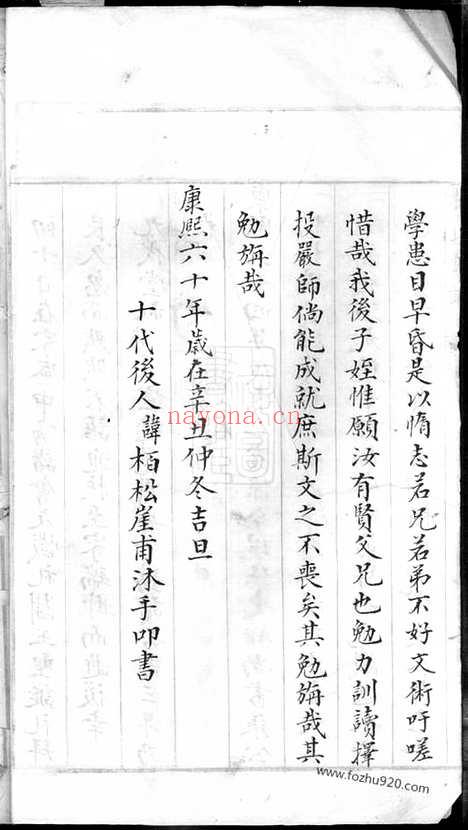 學患目早昏是以惰志若兄若弟不好文術吁嗟
惜哉我後子姪惟願汝有賢父兄也勉力訓讀擇
投嚴師倘能成就庶斯文之不喪矣其勉旃哉其
勉旃哉
康熙六十年歲在辛丑仲冬吉旦
十代後人諱栢松崖甫沐手叩書
nayona.cn
www.fozhu920.com